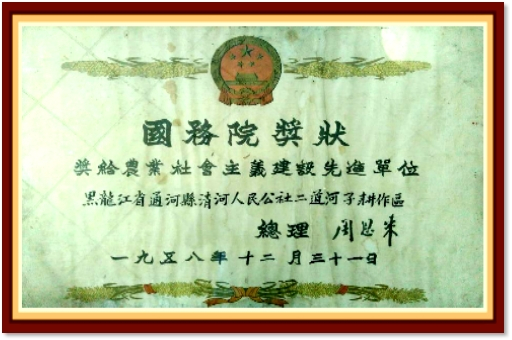 國務院獎狀
獎給農業社會主義建設先進單位
黑龍江省通河縣清河人民公社二道河子耕作區
總理 周恩来
一九五八年十二月三十一日